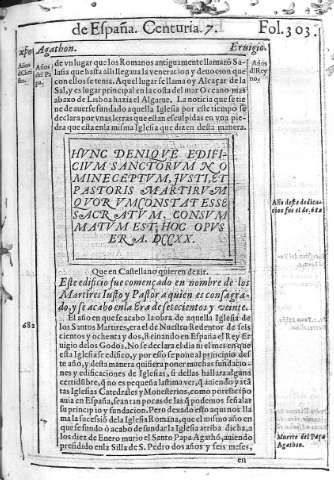 de España. Centuria. 7.
Fol. 303.
xpo Agathon.
Eruigio.
Años de Christo.
Años del Papa.
Años del Reyno.
de vn lugar que los Romanos antiguamente llamaro Salasia
que hasta alli llegaua la veneracion y deuocion que
con ellos se tenia. Aquel lugar se llama oy Alcaçar de la
Sal, y es lugar principal en la costa del mar Oceano mas
abaxo de Lisboa hazia el Algarue. La noticia que se tiene
de auerse fundado aquella Iglesia por este tiempo se
declara por vnas letras que estan esculpidas en vna piedra
que esta en la misma Iglesia que dizen desta manera.
HVNC DENIQVE EDIFI-
CIVM SANCTORVM NO
MINE CEPTVM, IVSTI, ET
PASTORIS MARTIRVM
QVORVM CONSTAT ESSE
SACRATVM, CONSVM
MATVM EST, HOC OPVS
ERA. DCCXX.
Año desta dedicacion
fue el de, 682
Que en Castellano quieren dezir.
Este edificio fue començado en nombre de los
Martires Iusto y Pastor a quien es consagrado,
y se acabo en la Era de setecientos y veinte.
682
El año en que se acabo la obra de aquella Iglesia de
los Santos Martires, era el de Nuestro Redentor de seiscientos
y ochenta y dos, Reinando en España el Rey Eruigio
de los Godos. No se declara el dia ni el mes en que
esta Iglesia se edifico, y por esso se pone al principio deste
año, y desta manera quisiera poner muchas fundaciones
y edificaciones de Iglesias, si dellas hallara alguna
certidumbre
tas Iglesias Catedrales y Monesterios, como por este tiempo
auia en España, sean tan pocas de las que podemos señalar
su principio y fundacion. Pero dexado esto aqui nos llama
la sucession de la Iglesia Romana, que el mismo año en
que se fundo ò acabo de fundar la Iglesia arriba dicha, a
los diez de Enero murio el Santo Papa Agathō, auiendo
presidido en la Silla de S. Pedro dos años y seis meses,
Muerte del Papa
Agathon.
en